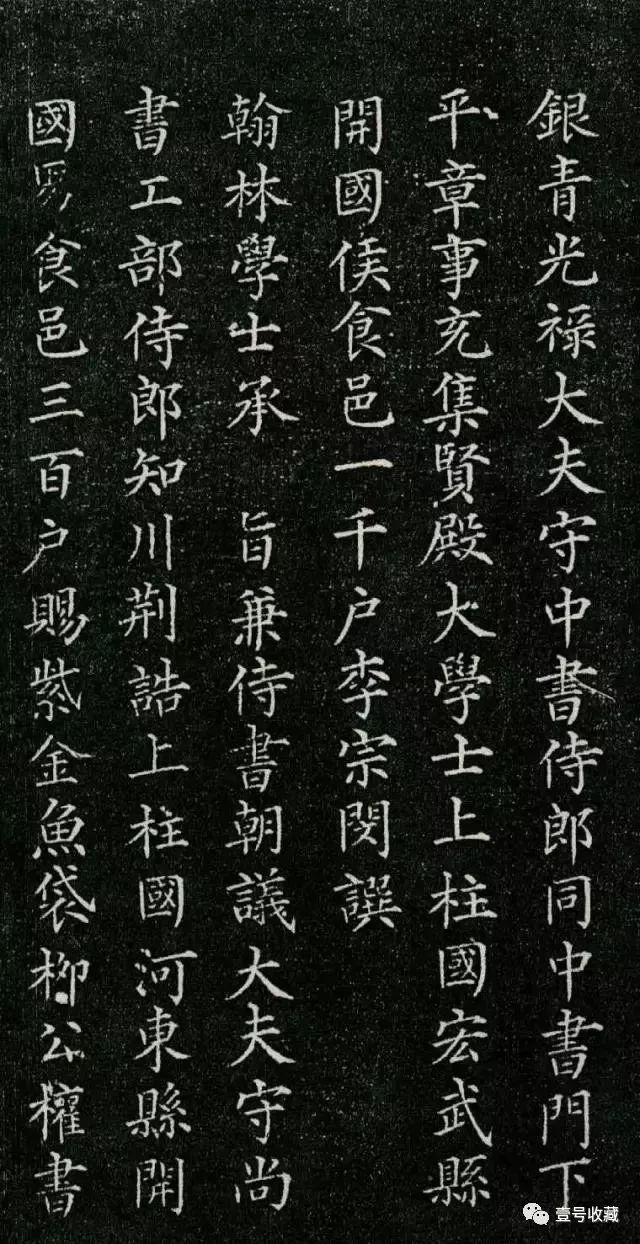 銀青光禄大夫守中書侍郎同中書門下
平章事充集賢殿大學士上柱國宏武縣
開國侯食邑一千户李宗閔譔
翰林學士承 旨兼侍書朝議大夫守尚
書工部侍郎知川荆誥上柱國河東縣開
國男食邑三百户賜紫金魚袋柳公權書
壹号收藏